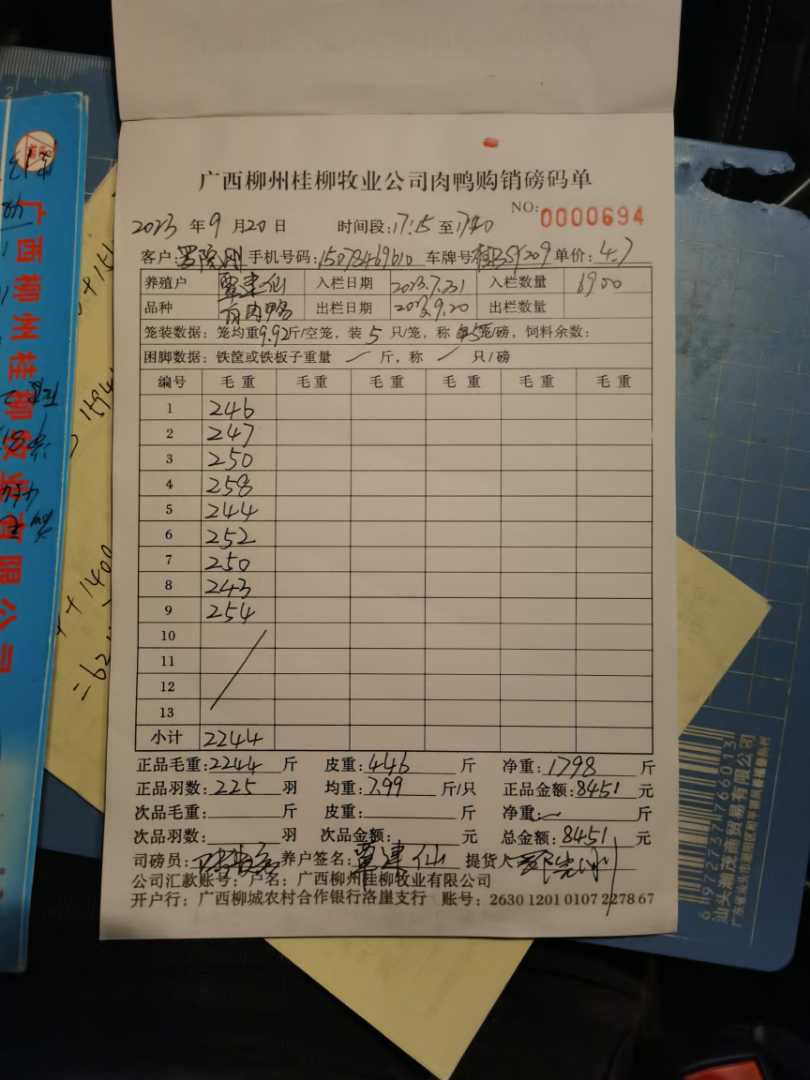 广西柳州桂柳牧业公司肉鸭购销磅码单
NO: 0000694
2023 年 9 月 20 日 时间段: 17:15 至 17:40
客户: 手机号码: 15078469610 车牌号: 单价: 4.7
养殖户 覃建仙 入栏日期 2023.7.21 入栏数量 6900
品种 肉鸭 出栏日期 2023.9.20 出栏数量
笼装数据: 笼均重9.92斤/空笼, 装 5 只/笼, 称 5笼/磅, 饲料余数:
困脚数据: 铁筐或铁板子重量 斤, 称 只/磅
编号 毛重 毛重 毛重 毛重 毛重 毛重
1 246
2 247
3 250
4 258
5 244
6 252
7 250
8 243
9 254
10
11
12
13
小计 2244
正品毛重: 2244 斤 皮重: 446 斤 净重: 1798 斤
正品羽数: 225 羽 均重: 7.99 斤/只 正品金额: 8451 元
次品毛重: 斤 皮重: 斤 净重: 斤
次品羽数: 羽 次品金额: 元 总金额: 8451 元
司磅员: 养户签名: 覃建仙 提货人
公司汇款账号: 户名: 广西柳州桂柳牧业有限公司
开户行: 广西柳城农村合作银行洛崖支行 账号: 2630 1201 0107 2278 67
广西柳州桂柳牧业有限公司
6 972737 766013
汕头潮茂商贸有限公司